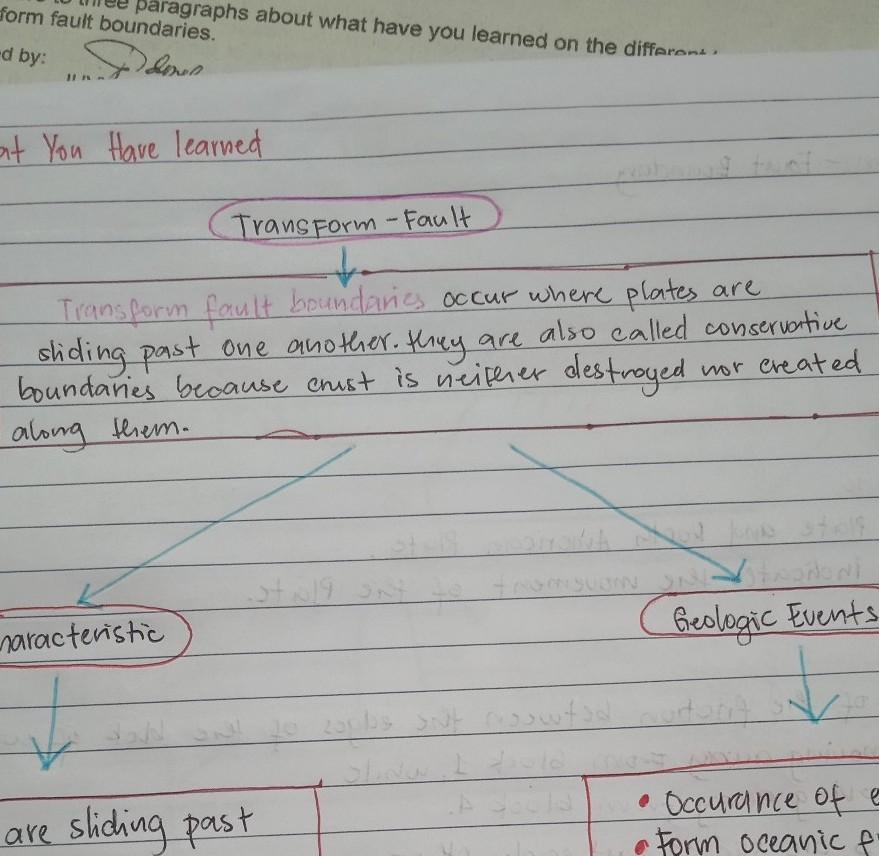 three paragraphs about what have you learned on the different
form fault boundaries.
d by:
at You Have learned
Transform-Fault
Transform fault boundaries occur where plates are
sliding past one another. they are also called conservative
boundaries because crust is neither destroyed nor created
along them.
haracteristic
Geologic Events
are sliding past
• Occurance of e
• Form oceanic f